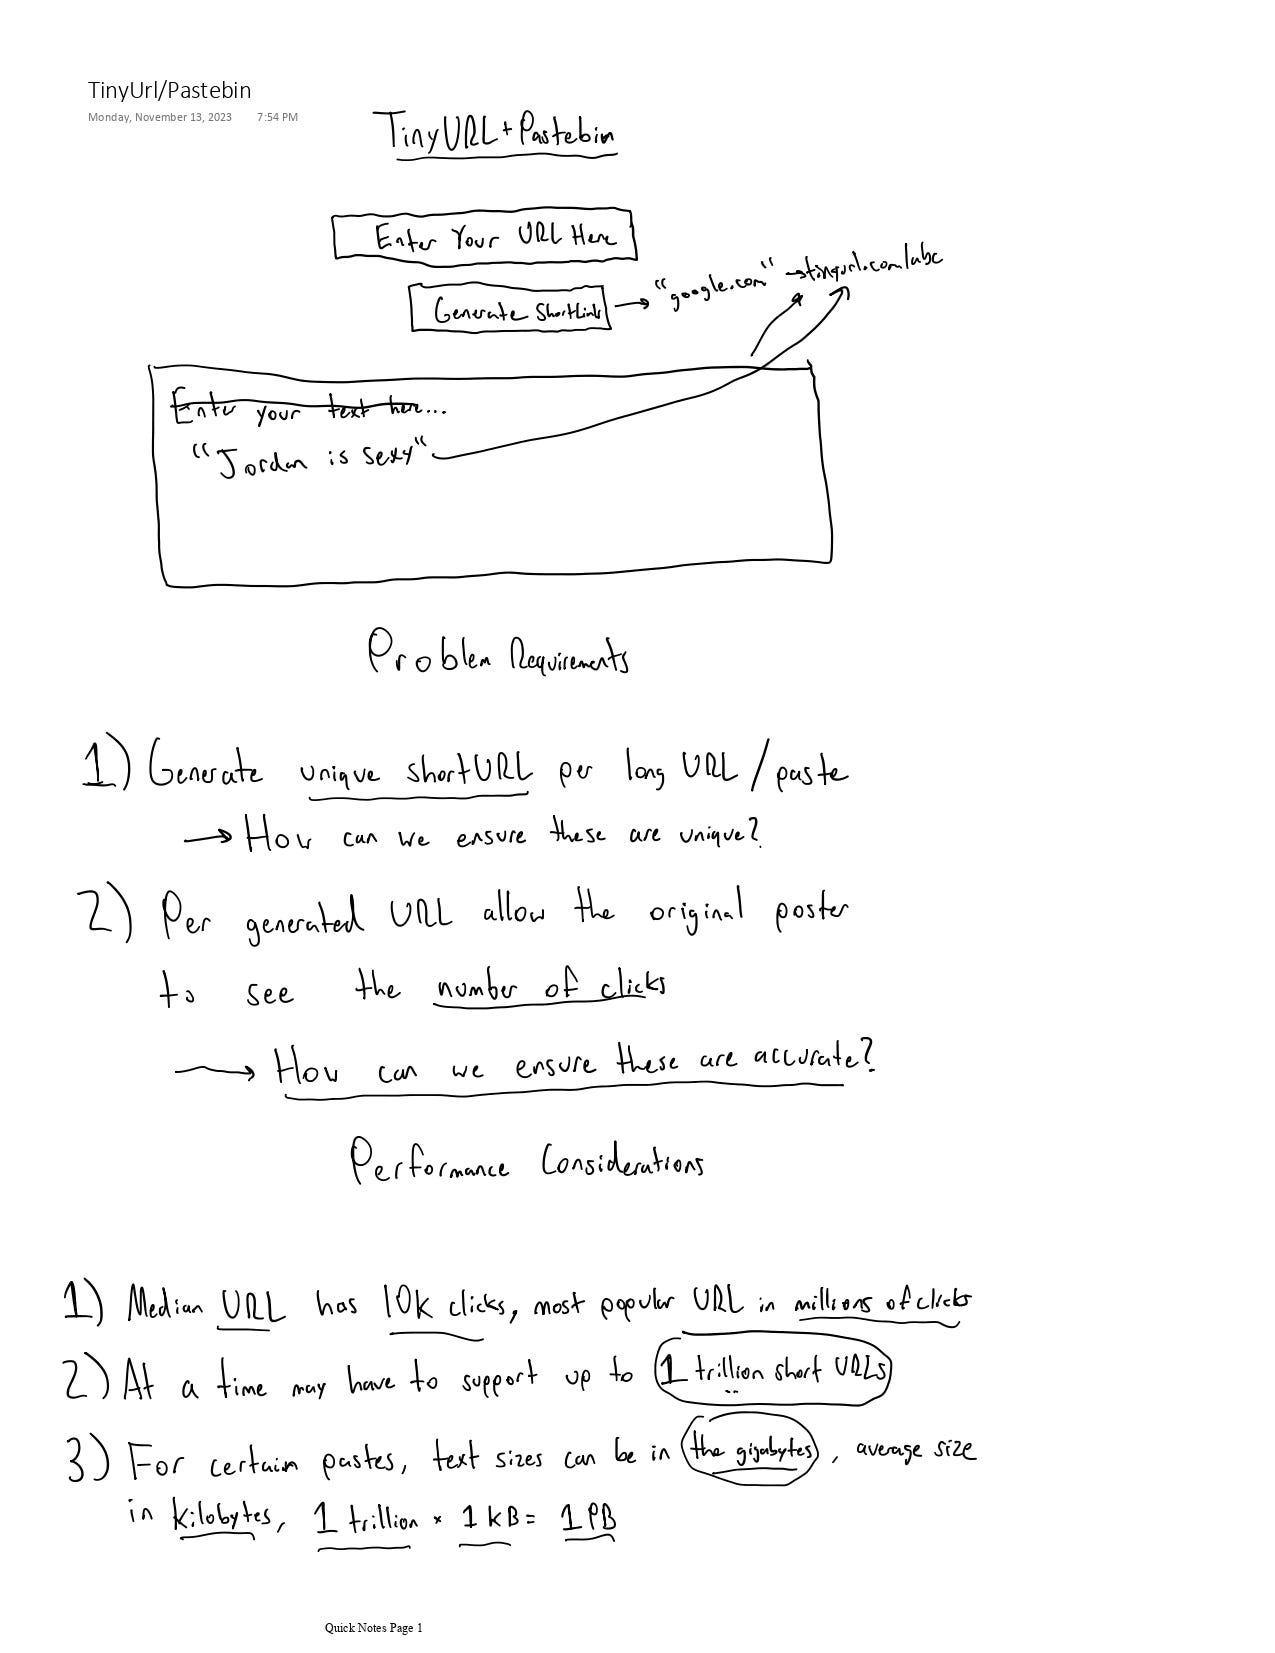 TinyUrl/Pastebin
Monday, November 13, 2023 7:54 PM
TinyURL+Pastebin
Enter Your URL Here
Generate ShortLink → "google.com" → tinyurl.com/abc
Enter your text here...
"Jordan is sexy"
Problem Requirements
1) Generate unique shortURL per long URL/paste
→ How can we ensure these are unique?
2) Per generated URL allow the original poster
to see the number of clicks
→ How can we ensure these are accurate?
Performance Considerations
1) Median URL has 10k clicks, most popular URL in millions of clicks
2) At a time may have to support up to 1 trillion short URLs
3) For certain pastes, text sizes can be in the gigabytes, average size
in kilobytes, 1 trillion * 1 kB = 1 PB
Quick Notes Page 1